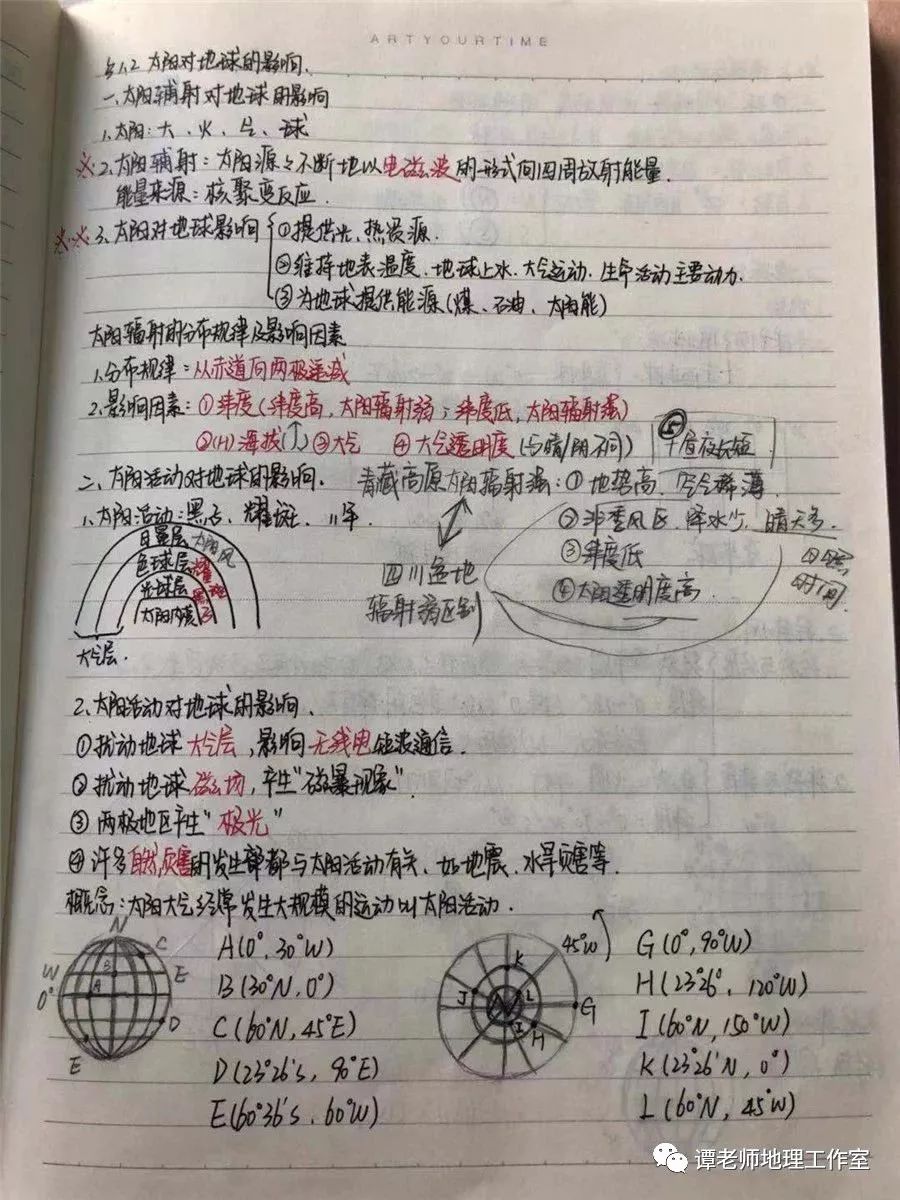 ARTYOURTIME
§1.2 太阳对地球的影响.
一、太阳辅射对地球的影响
1、太阳:大、火、气、球
※2.太阳辅射:太阳源々不断地以电磁波的形式向四周放射能量.
能量来源:核聚变反应.
※※3.太阳对地球影响 ①提供光、热资源.
②维持地表温度、地球上水、大气运动、生命活动主要动力.
③为地球提供能源(煤、石油、太阳能)
太阳辐射的分布规律及影响因素
1.分布规律:从赤道向两极递减
2.影响因素:①纬度(纬度高,太阳辐射弱;纬度低,太阳辐射强)
②(H)海拔(↑)③大气 ④大气透明度(与晴/阴不同) ⑤昼夜长短
二、太阳活动对地球的影响. 青藏高原太阳辐射强:①地势高,空气稀薄.
1.太阳活动:黑子、耀斑、11年. ②非季风区,降水少,晴天多.
日冕层 太阳风
色球层 耀斑
光球层 黑子
太阳内部
大气层.
四川盆地
辐射弱区别
③纬度低
④太阳透明度高.
日照
时间.
2.太阳活动对地球的影响.
①扰动地球大气层,影响无线电短波通信.
②扰动地球磁场,产生"磁暴现象"
③两极地区产生"极光"
④许多自然灾害的发生都与太阳活动有关、如地震、水旱灾害等.
概念:太阳大气经常发生大规模的运动叫太阳活动.
N
C
W
B
E
0°
A
D
E
A(0°,30°W)
B(30°N,0°)
C(60°N,45°E)
D(23°26's,90°E)
E(60°36's,60°W)
45°W
K
J
N
L
G
I
H
G(0°,90°W)
H(23°26',120°W)
I(60°N,150°W)
K(23°26'N,0°)
L(60°N,45°W)
谭老师地理工作室